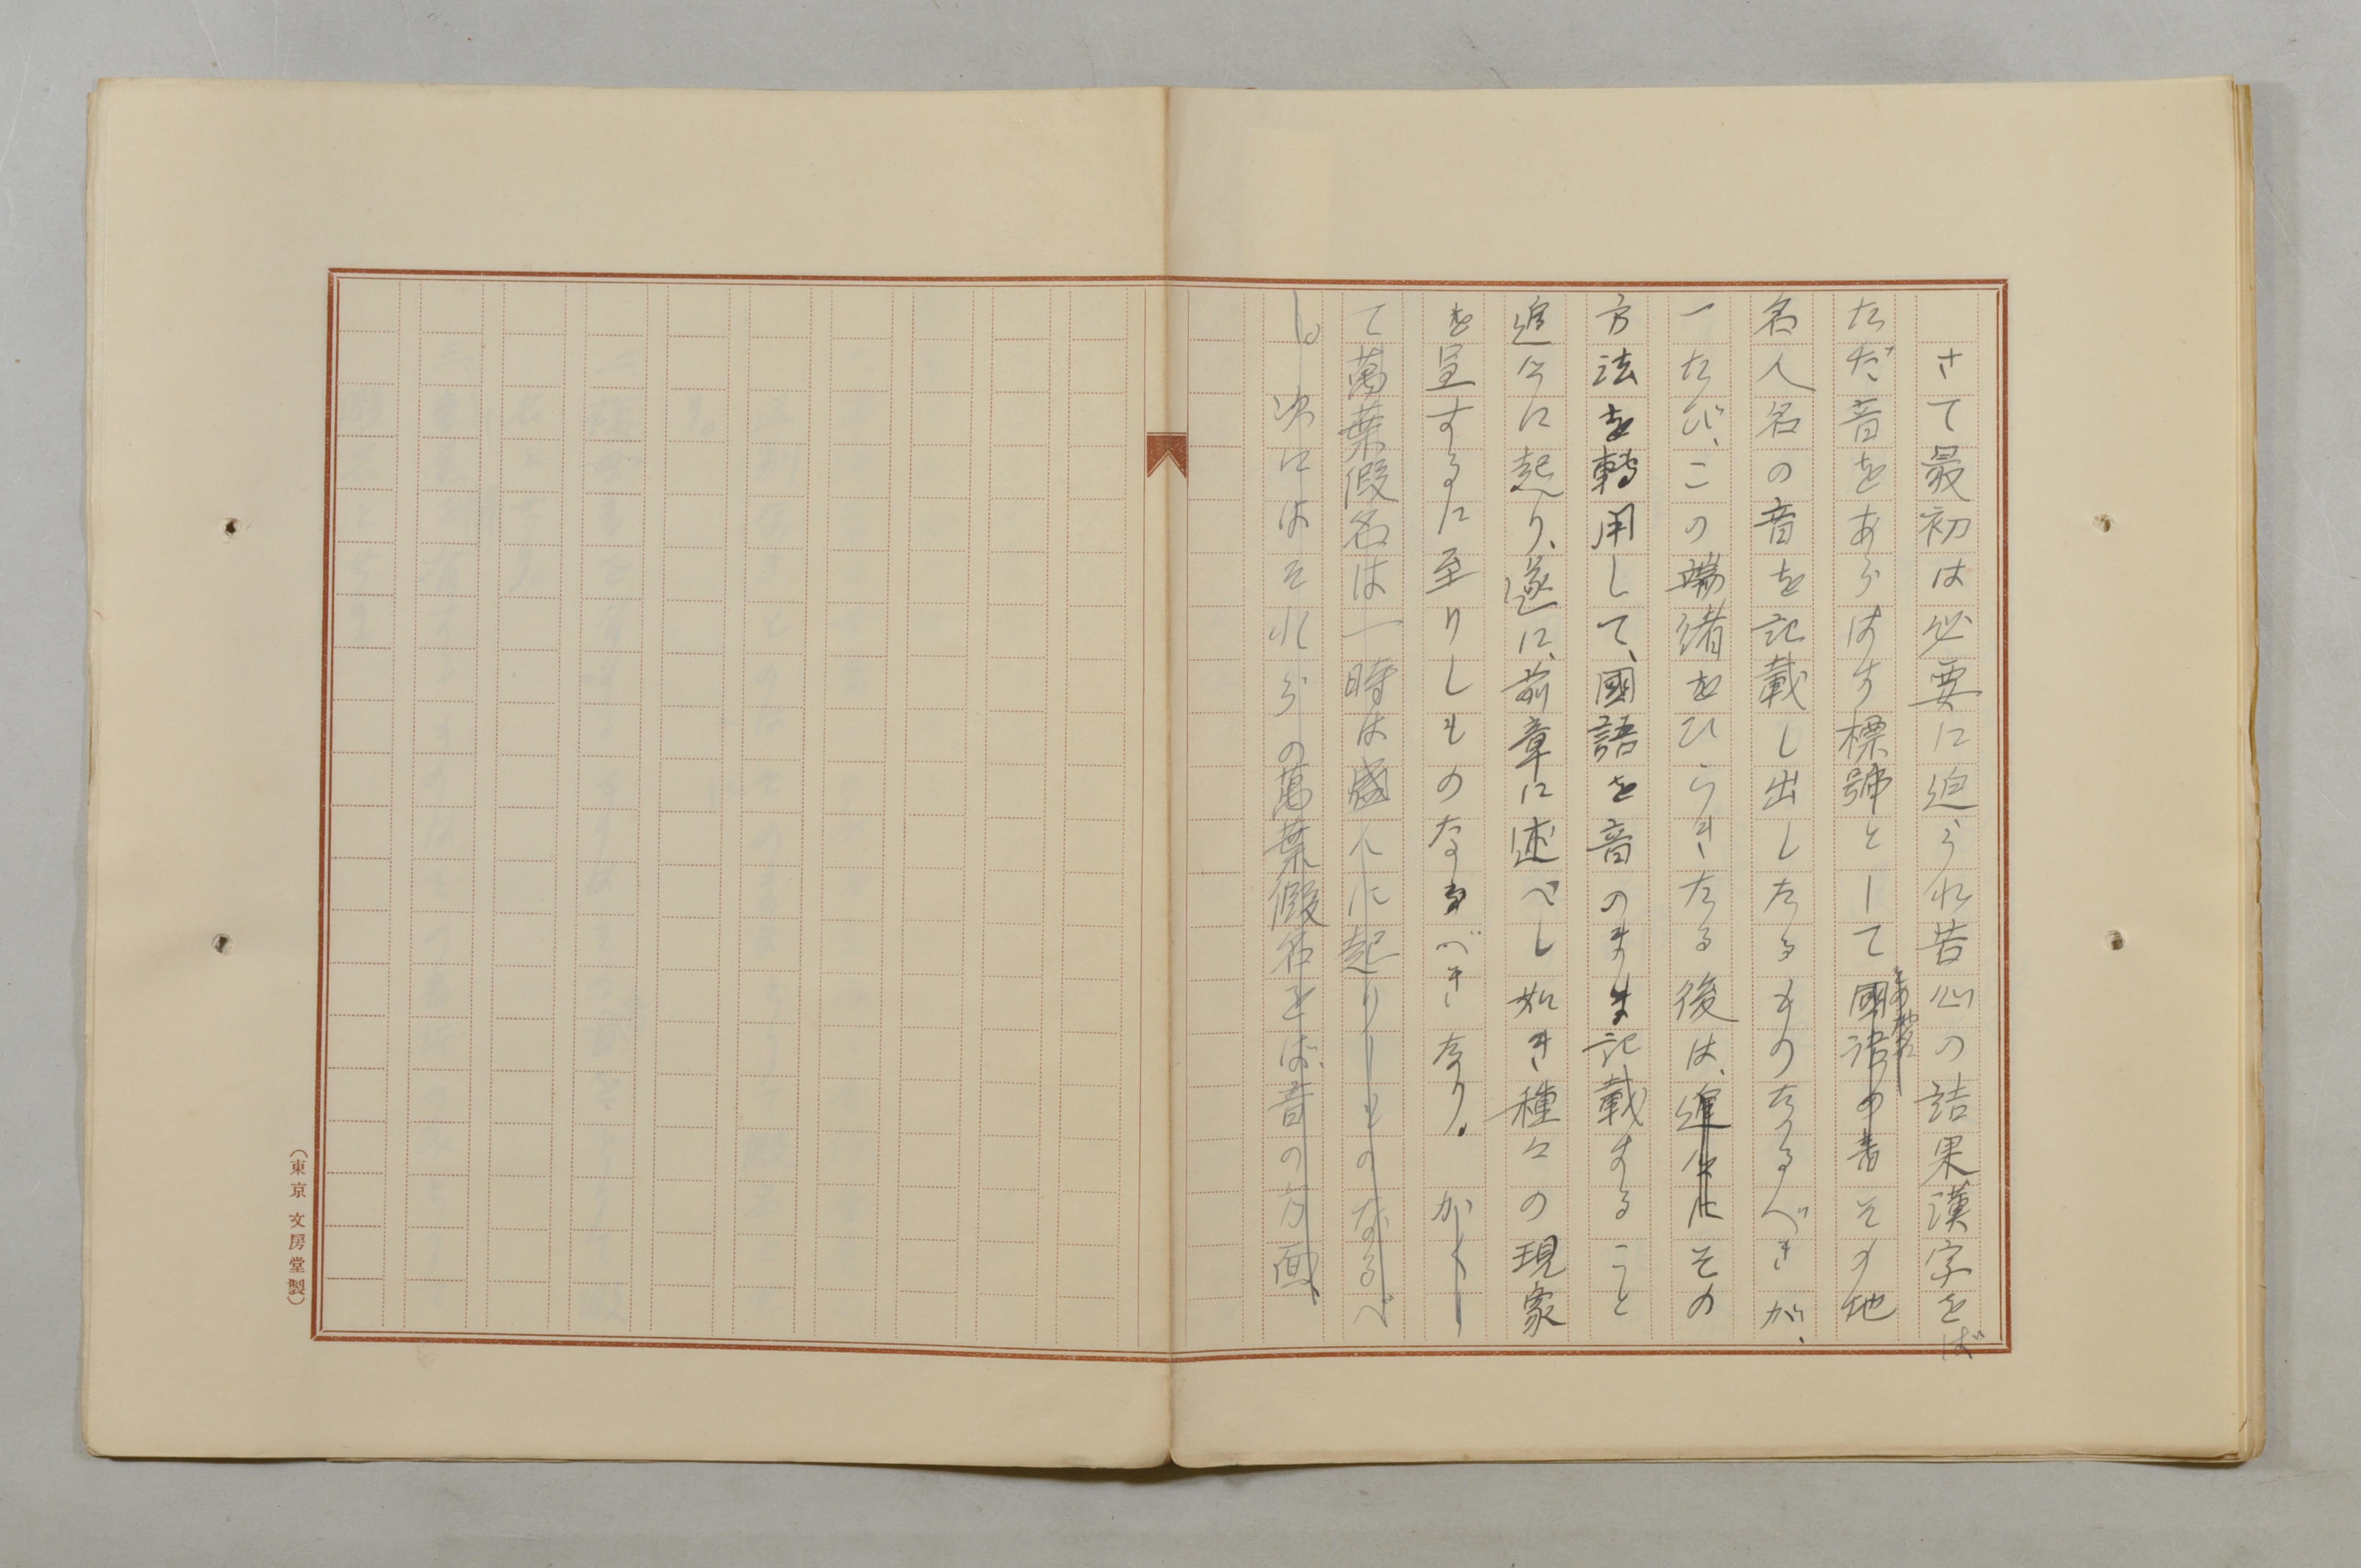 さて最初は必要に迫られ苦心の結果漢字をば
ただ音をあらはす標號として國語の音その地
その地名
名人名の音を記載し出したるものなるべきが、
一たび、この端緒をひらきたる後は、進んにその
方法を轉用して、國語を音のまま記載すること
進んに起り、遂に、前章に述べし如き種々の現象
を呈するに至りしものなるべきなり。かくし
て萬葉假名は一時は盛んに起りしものなるべ
し。次にはそれらの萬葉假名をば音の方面、
（東京 文房堂製）